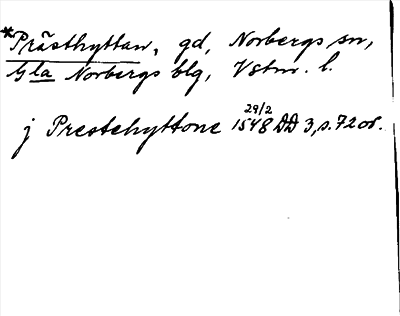 *Prästhyttan, gd, Norbergs sn,
Gla Norbergs blg, Vstm. l.
29/2
j Prestehyttone 1548 DD 3, s. 72 or.